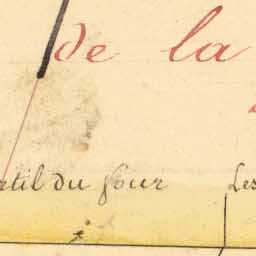 de la
rtil du four Les